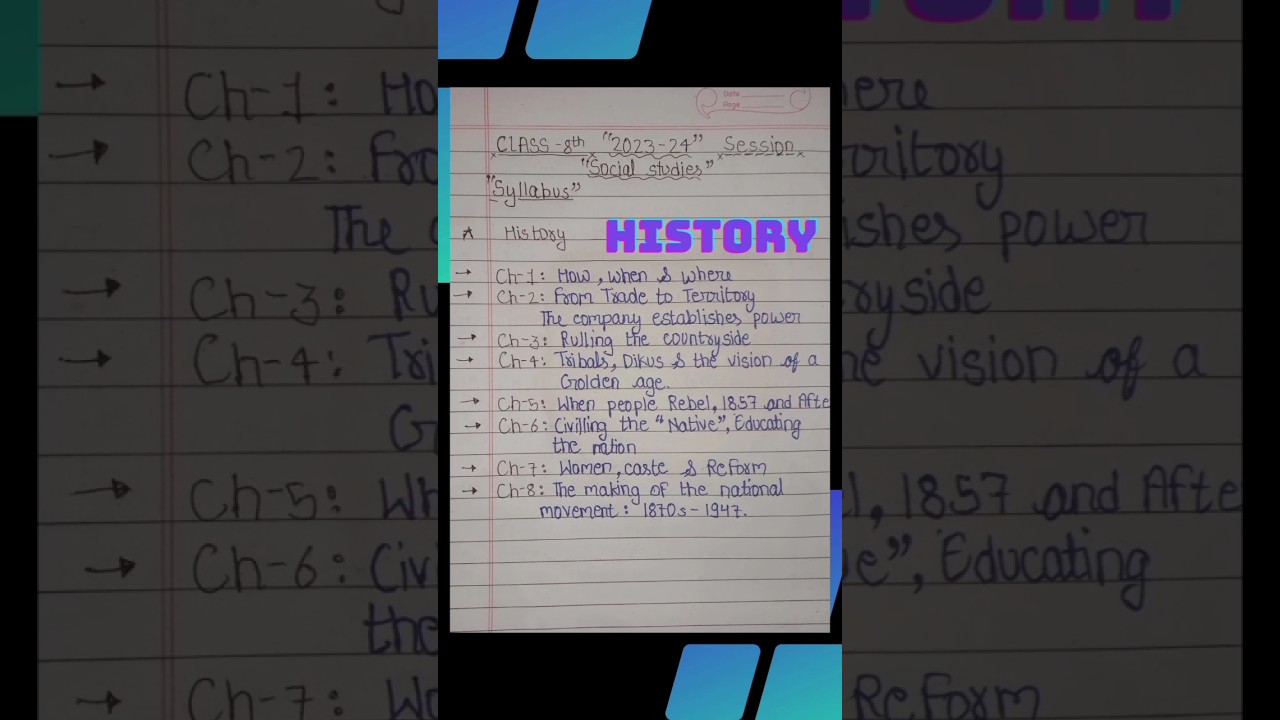 Date
Page
CLASS-8th "2023-24" Session
"Social studies"
"Syllabus"
History HISTORY
→ Ch-1: How, when & where
→ Ch-2: From Trade to Territory
The company establishes power
→ Ch-3: Rulling the countryside
→ Ch-4: Tribals, Dikus & the vision of a
Golden age.
→ Ch-5: When people Rebel, 1857 and Afte
→ Ch-6: Civilling the "Native", Educating
the nation
→ Ch-7: Women, caste & Reform
→ Ch-8: The making of the national
movement: 1870s-1947.